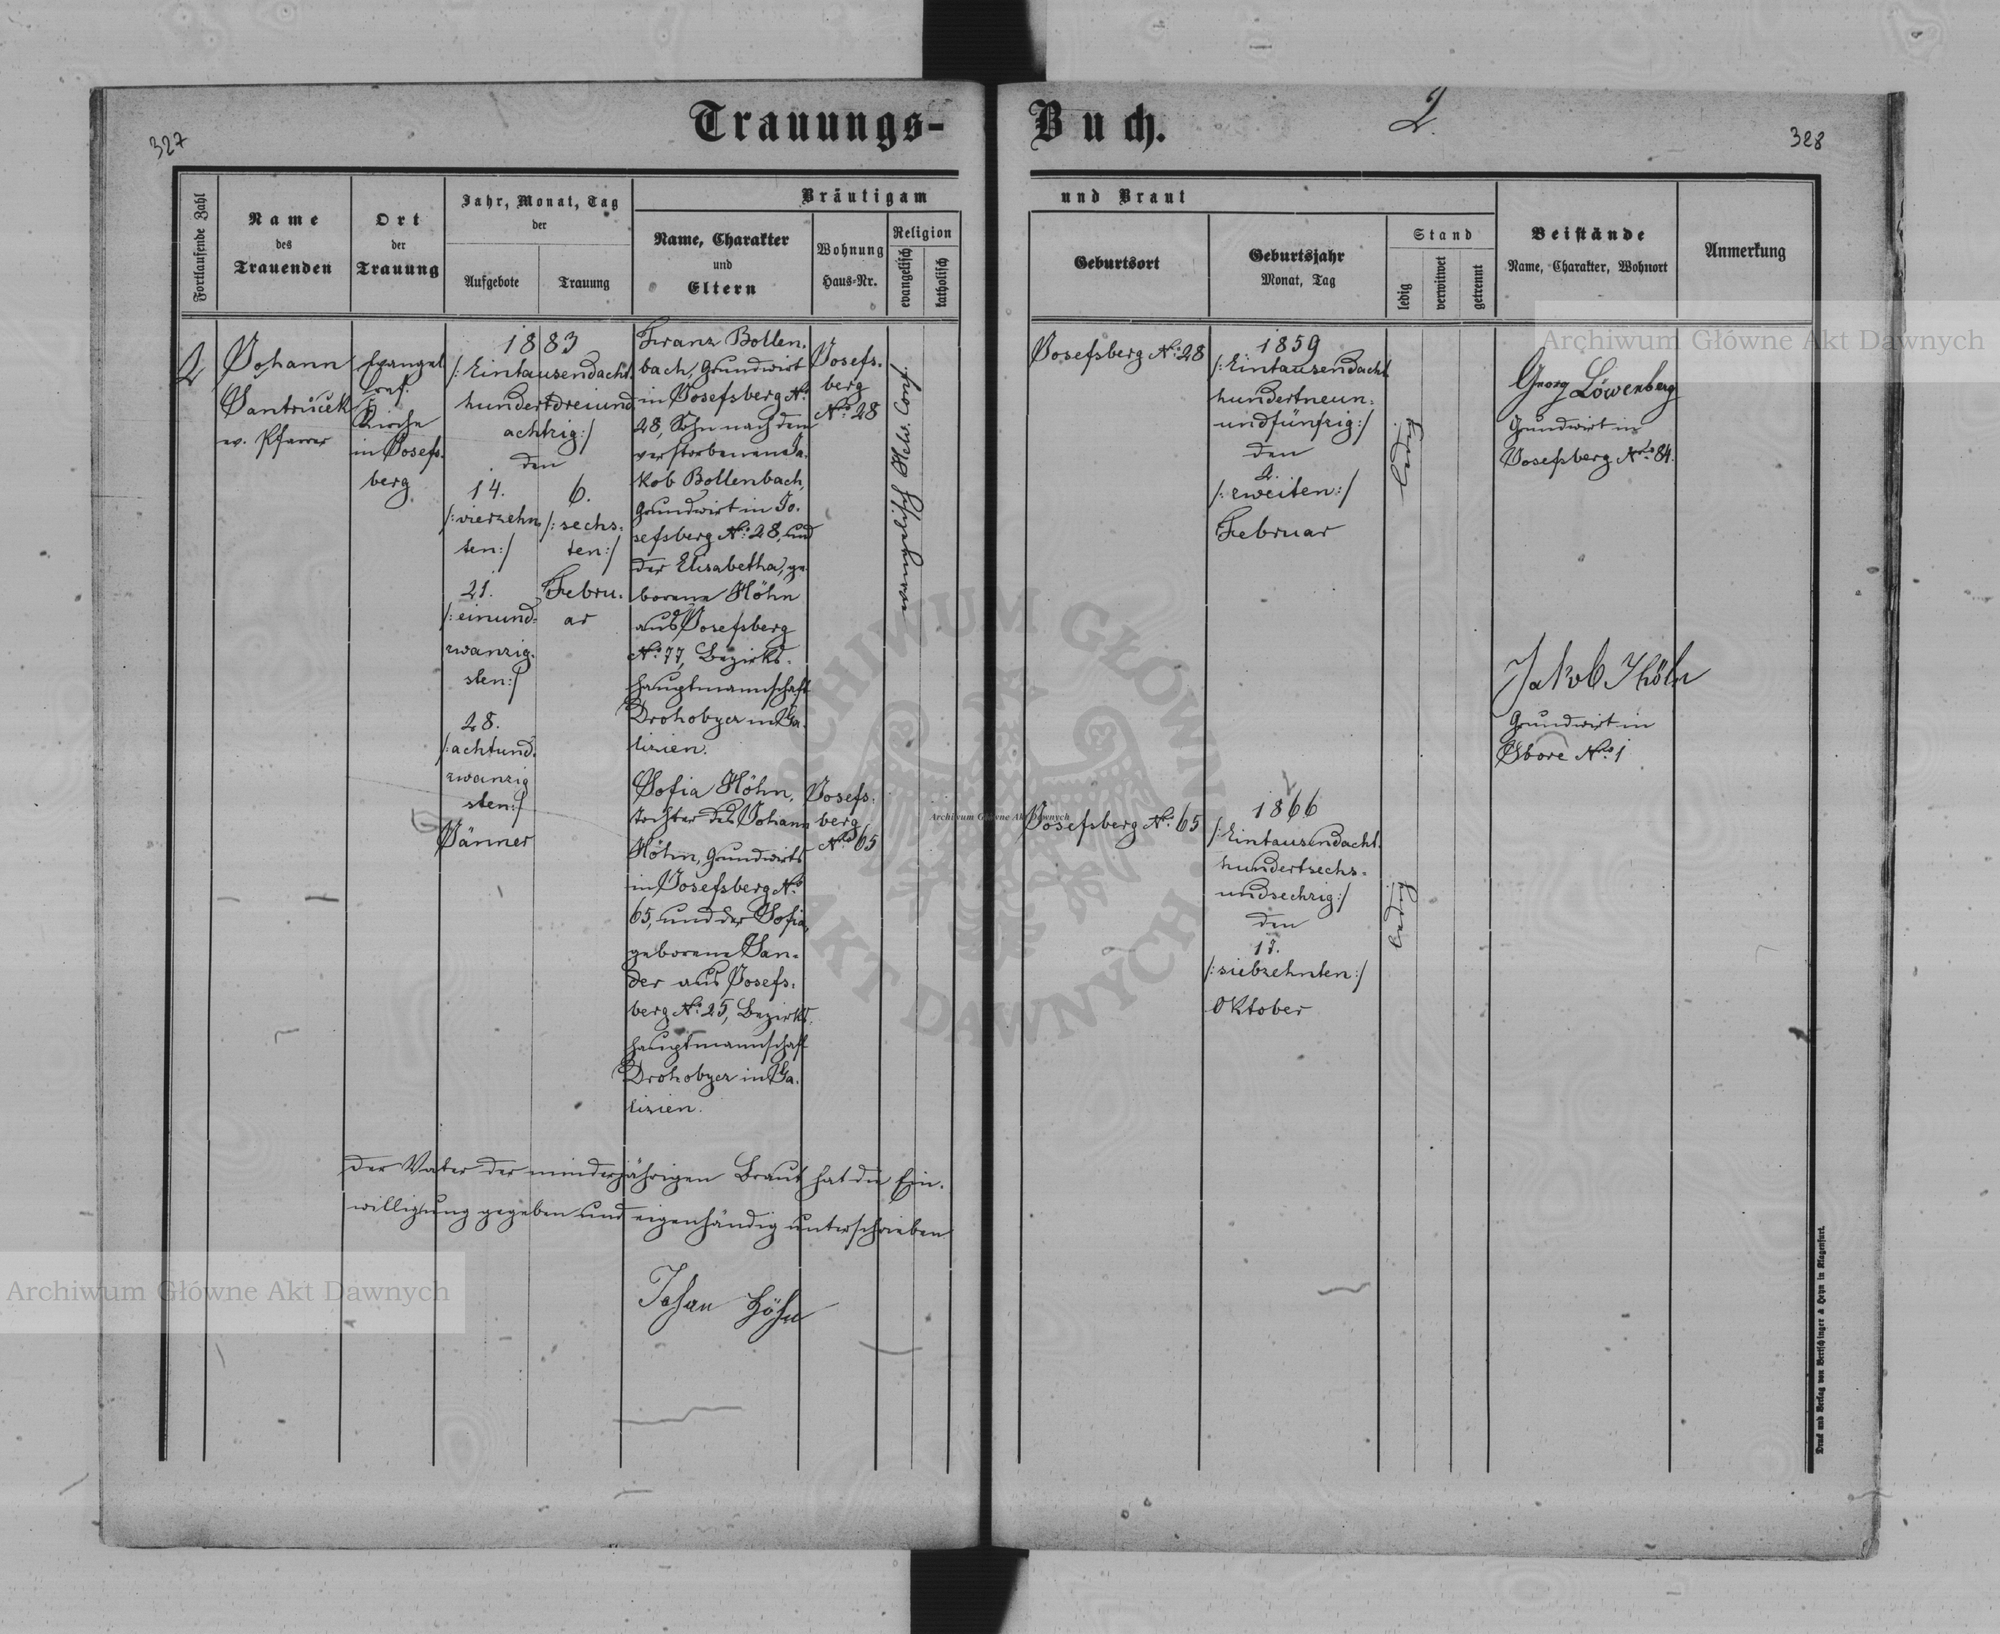 327
Trauungs-
Buch.
2.
328
Fortlaufende Zahl
Name
des
Trauenden
Ort
der
Trauung
Jahr, Monat, Tag
der
Aufgebote
Trauung
Bräutigam
Name, Charakter
und
Eltern
Wohnung
Haus=Nr.
Religion
evangelisch
katholisch
und Braut
Geburtsort
Geburtsjahr
Monat, Tag
Stand
ledig
verwitwet
getrennt
Beistände
Name, Charakter, Wohnort
Anmerkung
2
Johann
Santrůček
ev. Pfarrer
Evangel.
Kirche
in Josefs-
berg
1883
/:Eintausendacht-
hundertdreiund-
achtzig:/
den
14.
/:vierzehn-
ten:/
21.
/:einund-
zwanzig-
sten:/
28.
/:achtund-
zwanzig
sten:/
Jänner
6.
/:sechs-
ten:/
Febru-
ar
Franz Bollen-
bach, Grundwirt
in Josefsberg No
28, Sohn nach dem
verstorbenen Ja-
kob Bollenbach,
Grundwirt in Jo-
sefsberg No: 28, und
der Elisabetha, ge-
borene Höhn
aus Josefsberg
No: 77, Bezirks-
hauptmannschaft
Drohobycz in Ga-
lizien.
Josefs-
berg
No 28
evangelisch Helv. Conf.
Josefsberg No: 28
1859
/:Eintausendacht
hundertneun-
undfünfzig:/
den
2.
/:zweiten:/
Februar
ledig
Georg Löwenberg
Grundwirt in
Josefsberg Nro 84.
Jakob Höhn
Grundwirt in
No 1
Sofia Höhn,
Tochter des Johann
Höhn, Grundwirts
in Josefsberg No
65, und der Sofia,
geborene San-
der aus Josefs-
berg No: 25, Bezirks-
hauptmannschaft
Drohobycz in Ga-
lizien.
Josefs-
berg
Nro 65
Josefsberg No: 65
1866
/:Eintausendacht-
hundertsechs-
undsechzig:/
den
17.
/:siebzehnten:/
Oktober
ledig
Der Vater der minderjährigen Braut hat die Ein-
willigung gegeben und eigenhändig unterschrieben
Johan Höhn
Druck und Verlag von Bertschinger & Heyn in Klagenfurt.
Archiwum Główne Akt Dawnych
Archiwum Główne Akt Dawnych
Archiwum Główne Akt Dawnych
ARCHIWUM GŁÓWNE
AKT DAWNYCH